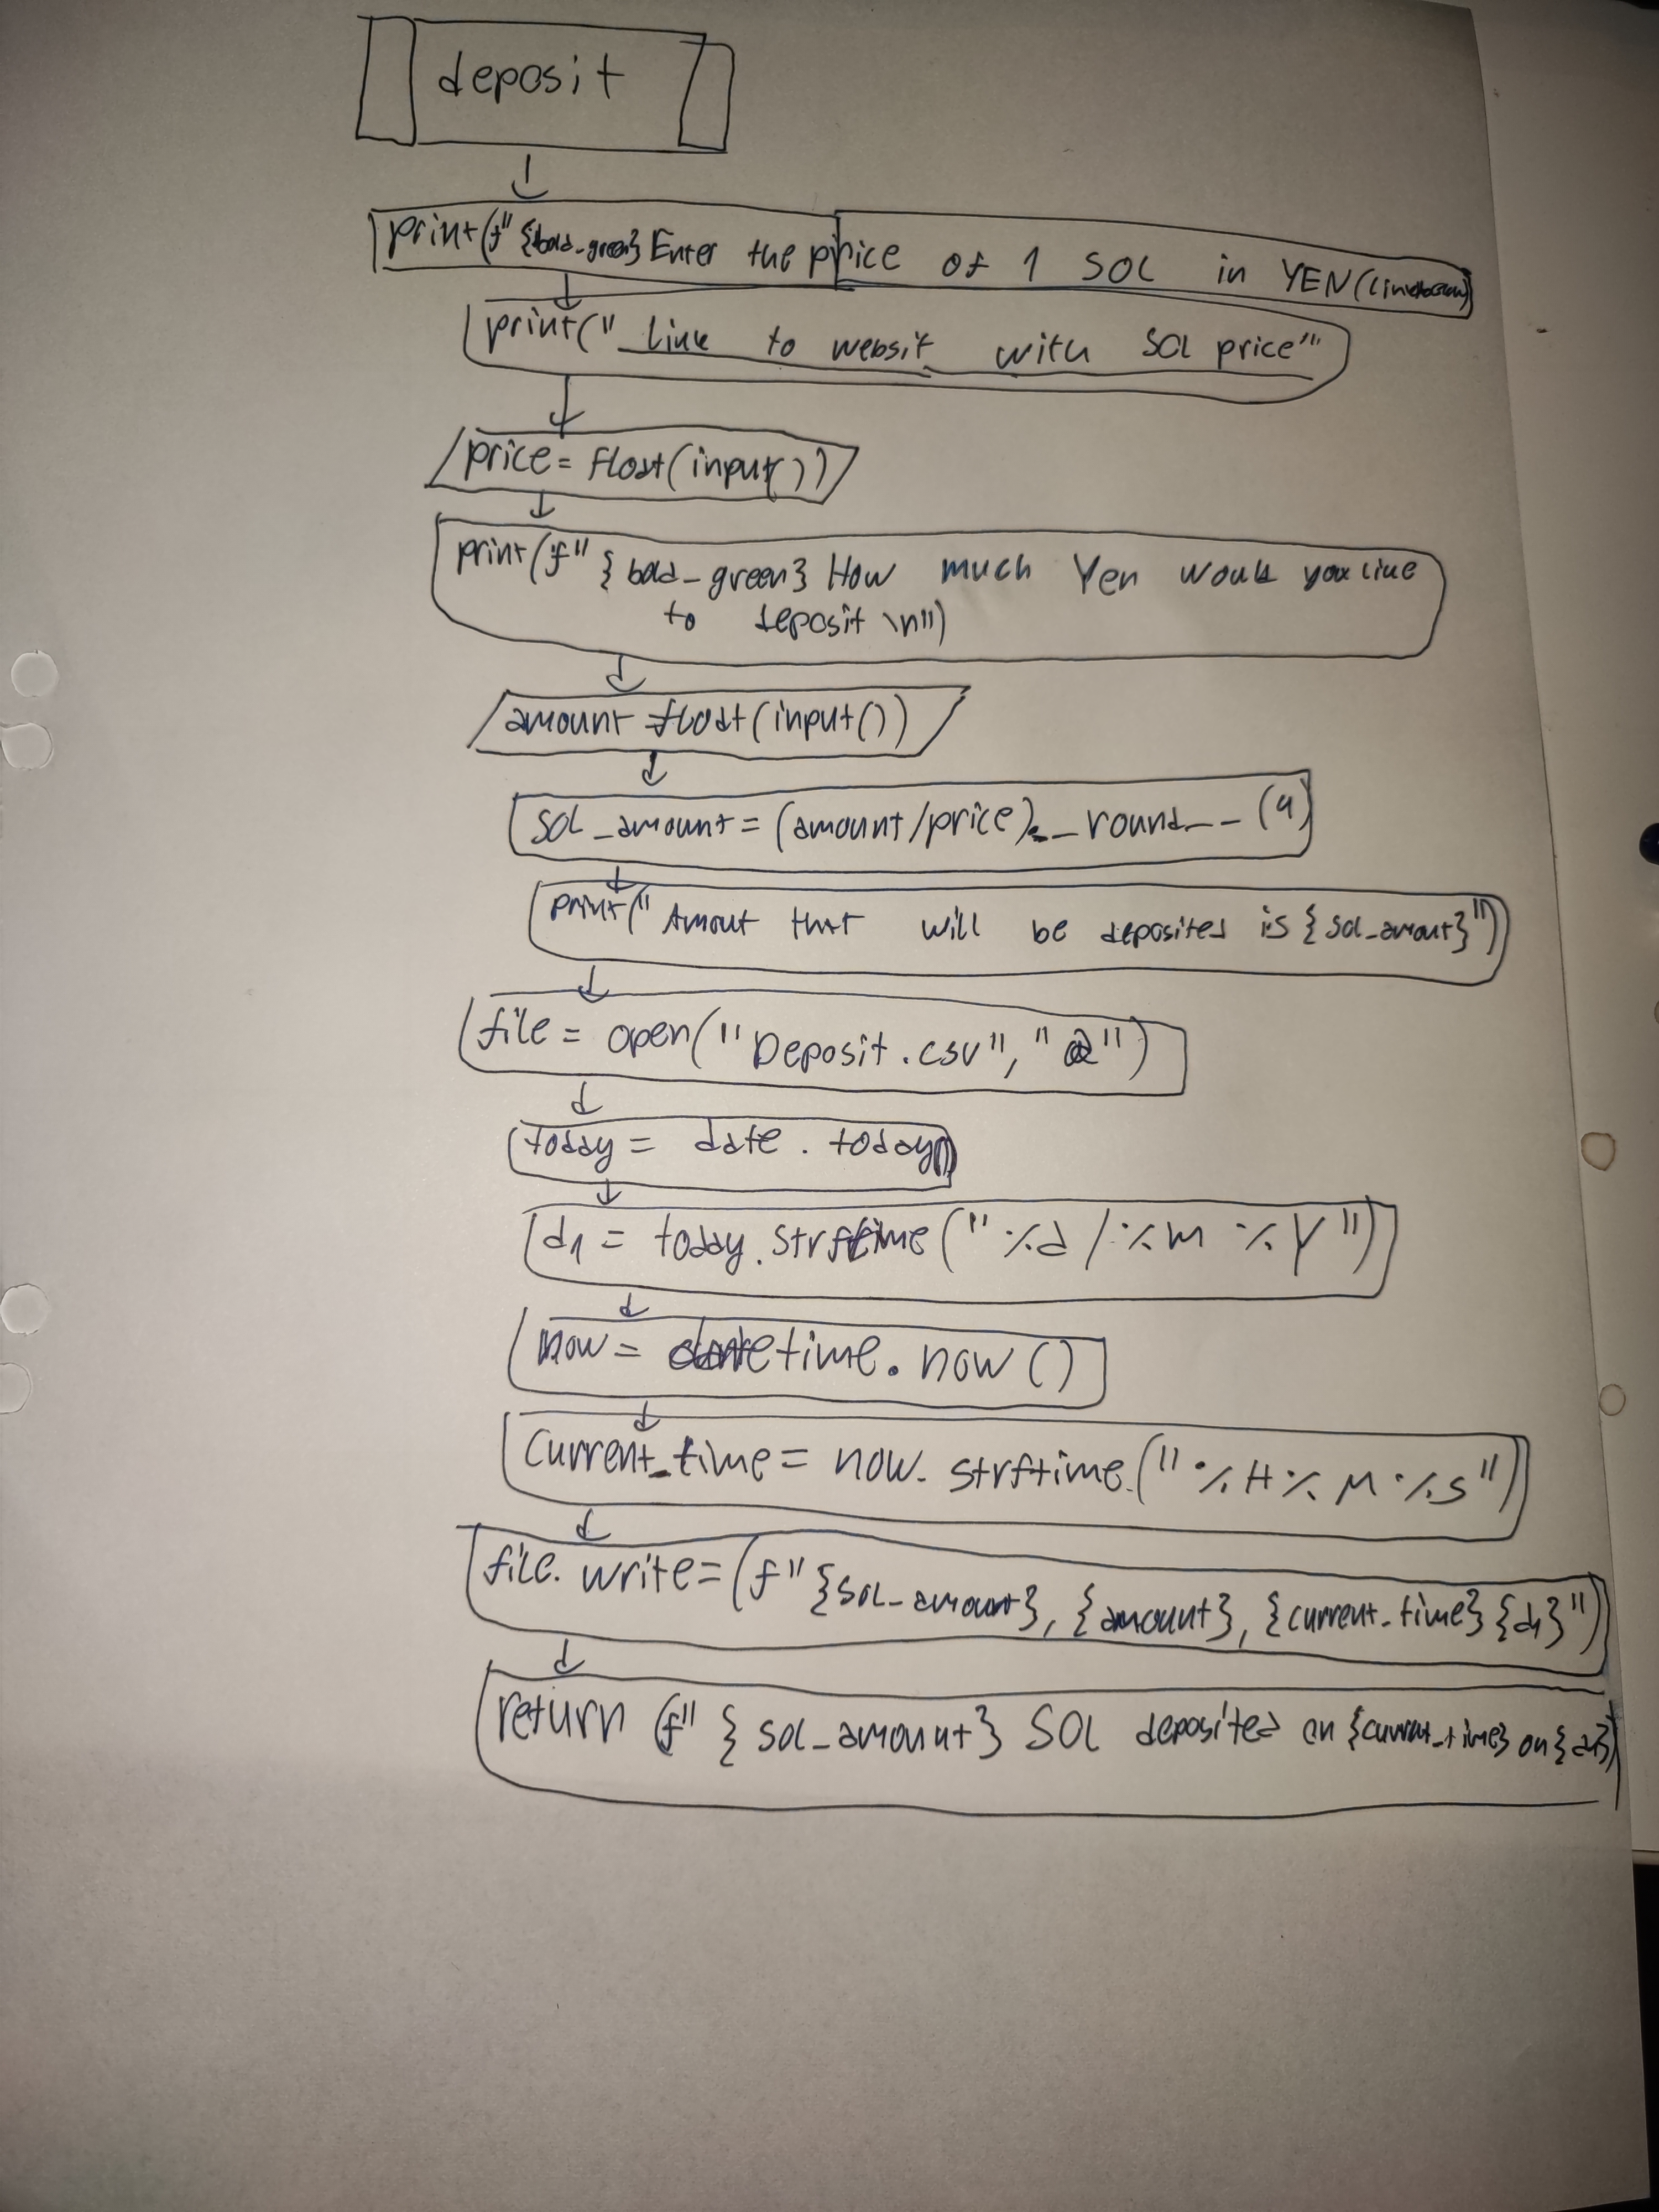 deposit
print(f"{bold_green} Enter the price of 1 SOL in YEN
print("Link to websit with SOL price""
price = float(input())
print(f"{bold_green} How much Yen would you like
to deposit \n")
amount = float(input())
SOL_amount = (amount/price).__round__(4)
print("Amout that will be deposited is {sol_amout}")
file = open("Deposit.csv", "a")
today = date.today()
d1 = today.strftime("%d/%m %Y")
now = datetime.now()
Current_time = now.strftime.("%H%M%S")
file.write=(f"{SOL_amount}, {amount}, {current_time} {d1}")
return (f"{sol_amount} SOL deposited on {current_time} on {d1}